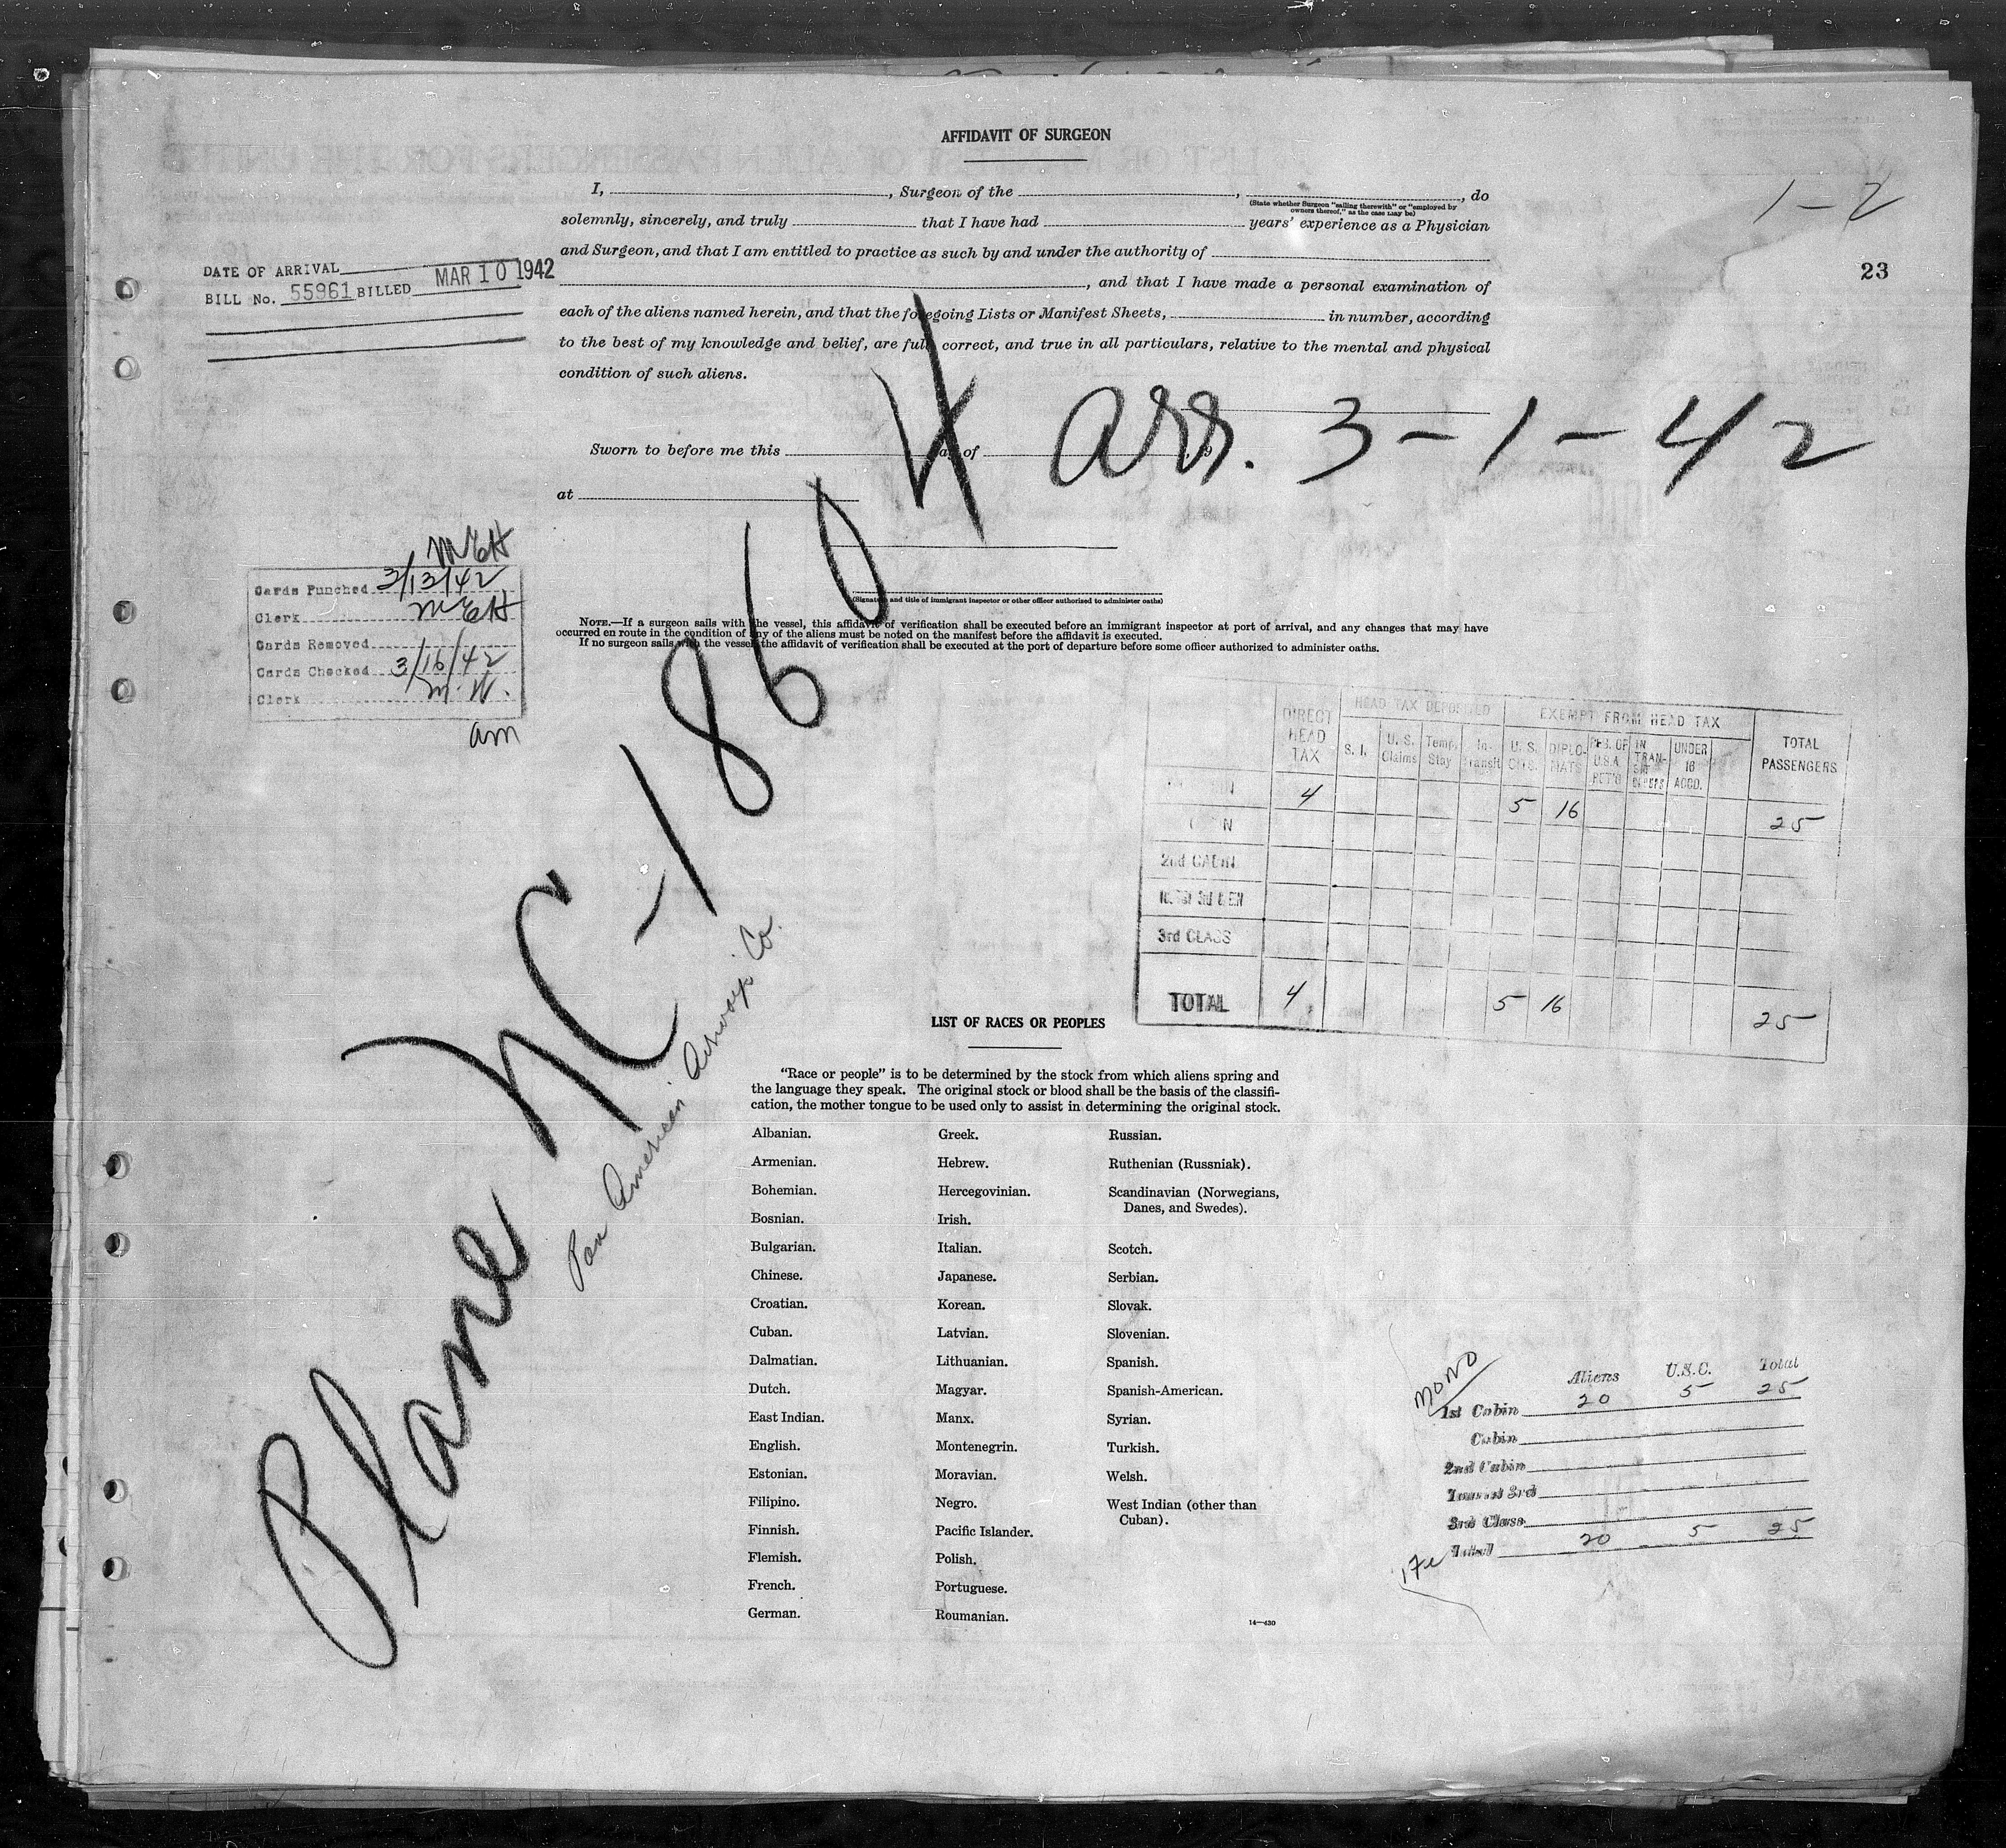 AFFIDAVIT OF SURGEON
I, , Surgeon of the , , do
(State whether Surgeon "sailing therewith" or "employed by
owners thereof," as the case may be)
solemnly, sincerely, and truly that I have had years' experience as a Physician
and Surgeon, and that I am entitled to practice as such by and under the authority of
, and that I have made a personal examination of
each of the aliens named herein, and that the foregoing Lists or Manifest Sheets, in number, according
to the best of my knowledge and belief, are full, correct, and true in all particulars, relative to the mental and physical
condition of such aliens.
1-2
23
DATE OF ARRIVAL
BILL No. 55961 BILLED MAR 10 1942
arr. 3-1-42
Sworn to before me this day of , 19
at
(Signature and title of immigrant inspector or other officer authorized to administer oaths)
NOTE.—If a surgeon sails with the vessel, this affidavit of verification shall be executed before an immigrant inspector at port of arrival, and any changes that may have
occurred en route in the condition of any of the aliens must be noted on the manifest before the affidavit is executed.
If no surgeon sails with the vessel, the affidavit of verification shall be executed at the port of departure before some officer authorized to administer oaths.
MEH
Cards Punched 3/13/42
Clerk MEH
Cards Removed
Cards Checked 3/16/42
Clerk M.W.
am
Plane NC-18604
Pan American Airways Co.
DIRECT HEAD TAX
HEAD TAX DEPOSITED
S. I. U. S. Claims Temp. Stay In-Transit
EXEMPT FROM HEAD TAX
U. S. CITS. DIPLO-MATS RES. OF U.S.A. RET'D IN TRAN-SIT UNDER 16 ACCD.
TOTAL PASSENGERS
4 5 16 25
2nd CABIN
3rd CLASS
TOTAL 4 5 16 25
LIST OF RACES OR PEOPLES
"Race or people" is to be determined by the stock from which aliens spring and
the language they speak. The original stock or blood shall be the basis of the classifi-
cation, the mother tongue to be used only to assist in determining the original stock.
Albanian.
Armenian.
Bohemian.
Bosnian.
Bulgarian.
Chinese.
Croatian.
Cuban.
Dalmatian.
Dutch.
East Indian.
English.
Estonian.
Filipino.
Finnish.
Flemish.
French.
German.
Greek.
Hebrew.
Hercegovinian.
Irish.
Italian.
Japanese.
Korean.
Latvian.
Lithuanian.
Magyar.
Manx.
Montenegrin.
Moravian.
Negro.
Pacific Islander.
Polish.
Portuguese.
Roumanian.
Russian.
Ruthenian (Russniak).
Scandinavian (Norwegians,
Danes, and Swedes).
Scotch.
Serbian.
Slovak.
Slovenian.
Spanish.
Spanish-American.
Syrian.
Turkish.
Welsh.
West Indian (other than
Cuban).
14—430
Aliens U.S.C. Total
1st Cabin 20 5 25
Cabin
2nd Cabin
Tourist 3rd
3rd Class
Total 20 5 25